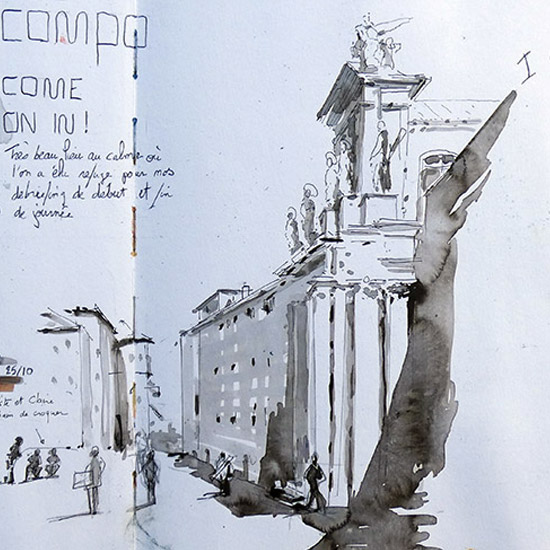 COMPO
COME
ON IN!
Très beau lieu au calme où
l'on a élu refuge pour nos
débriefing de début et fin
de journée
I
25/10
et Claire
de croquer